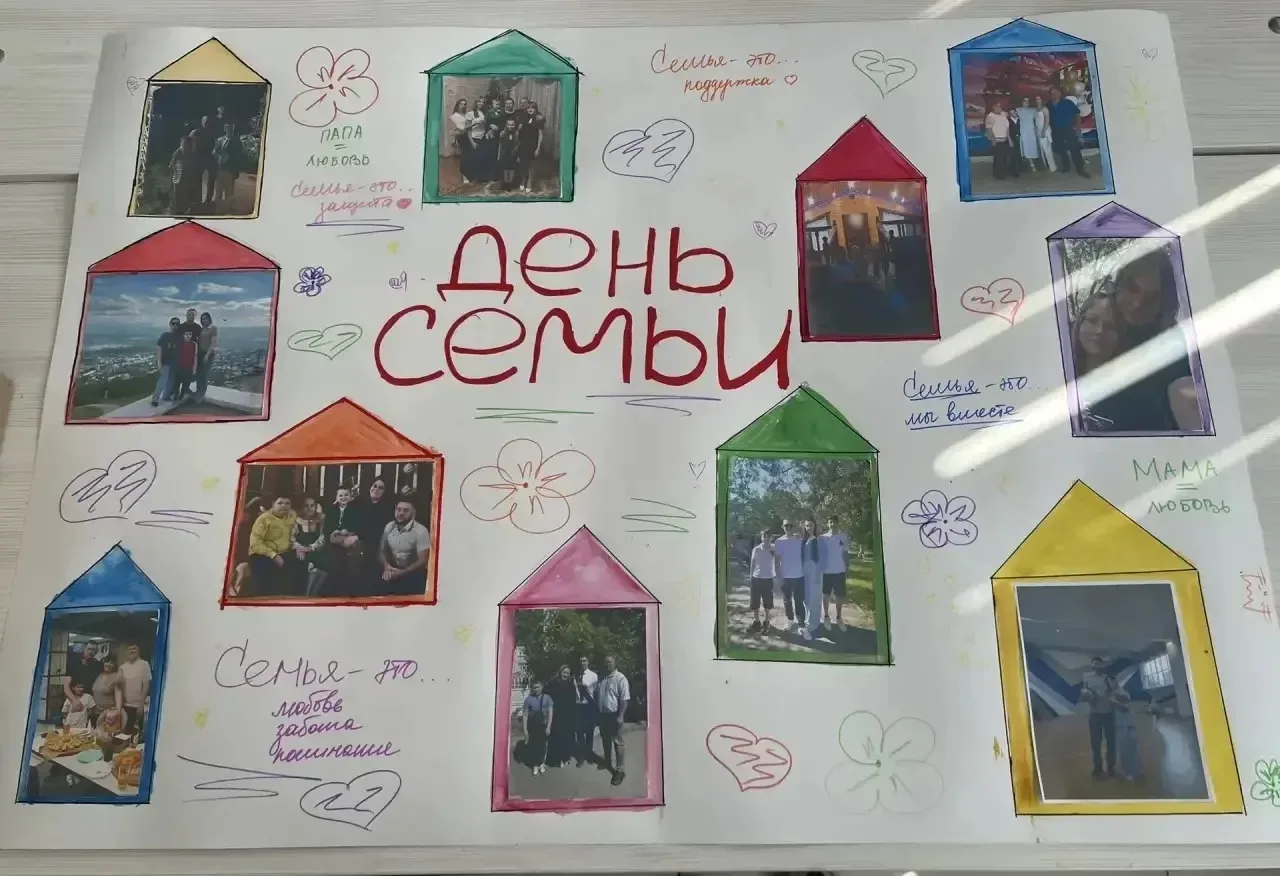 Семья-это...
поддержка
ПАПА
=
ЛЮБОВЬ
Семья-это..
защита
ДЕНЬ
СЕМЬИ
Семья-это...
мы вместе
МАМА
=
ЛЮБОВЬ
Семья-это...
любовь
забота
понимание